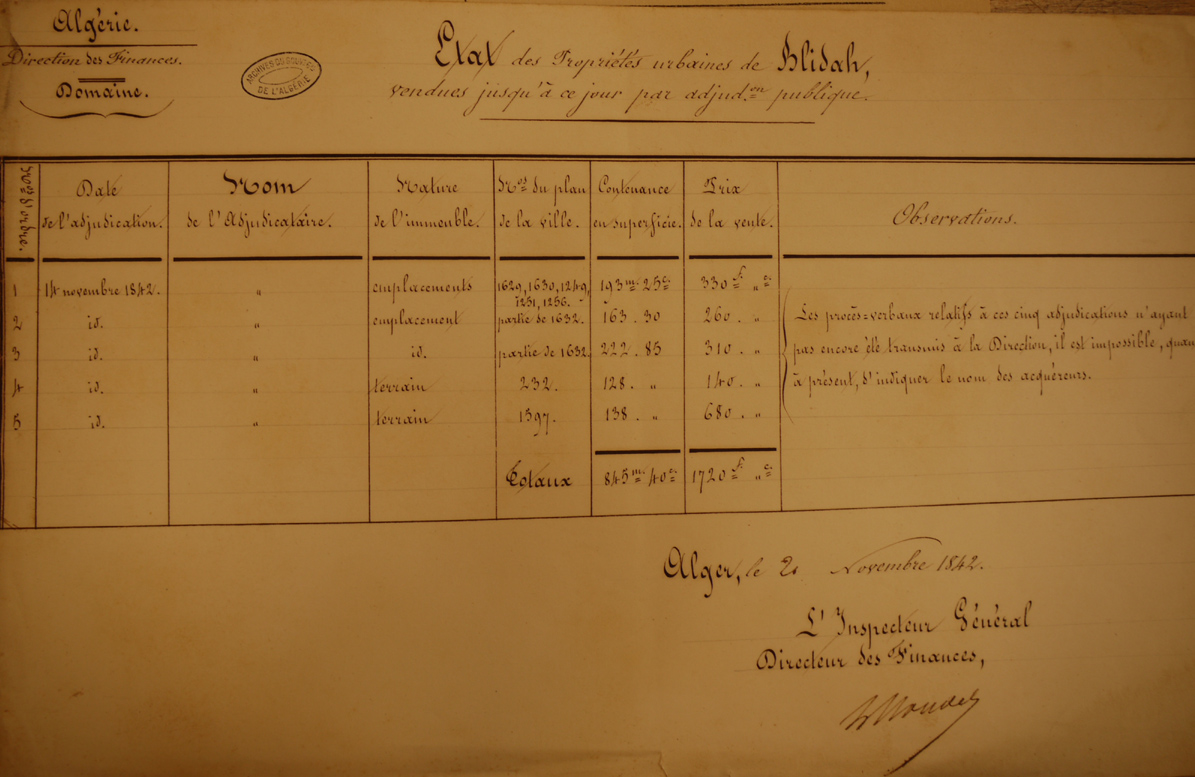 Algérie.
Direction des Finances.
Domaine.
ARCHIVES DU GOUV. GEN. DE L'ALGÉRIE
Etat des Propriétés urbaines de Blidah,
vendues jusqu'à ce jour par adjud.on publique.
Nos d'ordre. Date de l'adjudication. Nom de l'Adjudicataire. Nature de l'immeuble. Nos du plan de la ville. Contenance en superficie. Prix de la vente. Observations.
1 14 novembre 1842. " emplacements 1629, 1630, 1249, 1251, 1256. 193m. 25c. 330f. "c.
2 id. " emplacement partie de 1632. 163. 30 260. "
3 id. " id. partie de 1632. 222. 85 310. "
4 id. " terrain 232. 128. " 140. "
5 id. " terrain 1397. 138. " 680. "
Les procès=verbaux relatifs à ces cinq adjudications n'ayant
pas encore été transmis à la Direction, il est impossible, quant
à présent, d'indiquer le nom des acquéreurs.
Totaux 845m. 40c. 1720f. "c.
Alger, le Novembre 1842.
L'Inspecteur Général
Directeur des Finances,